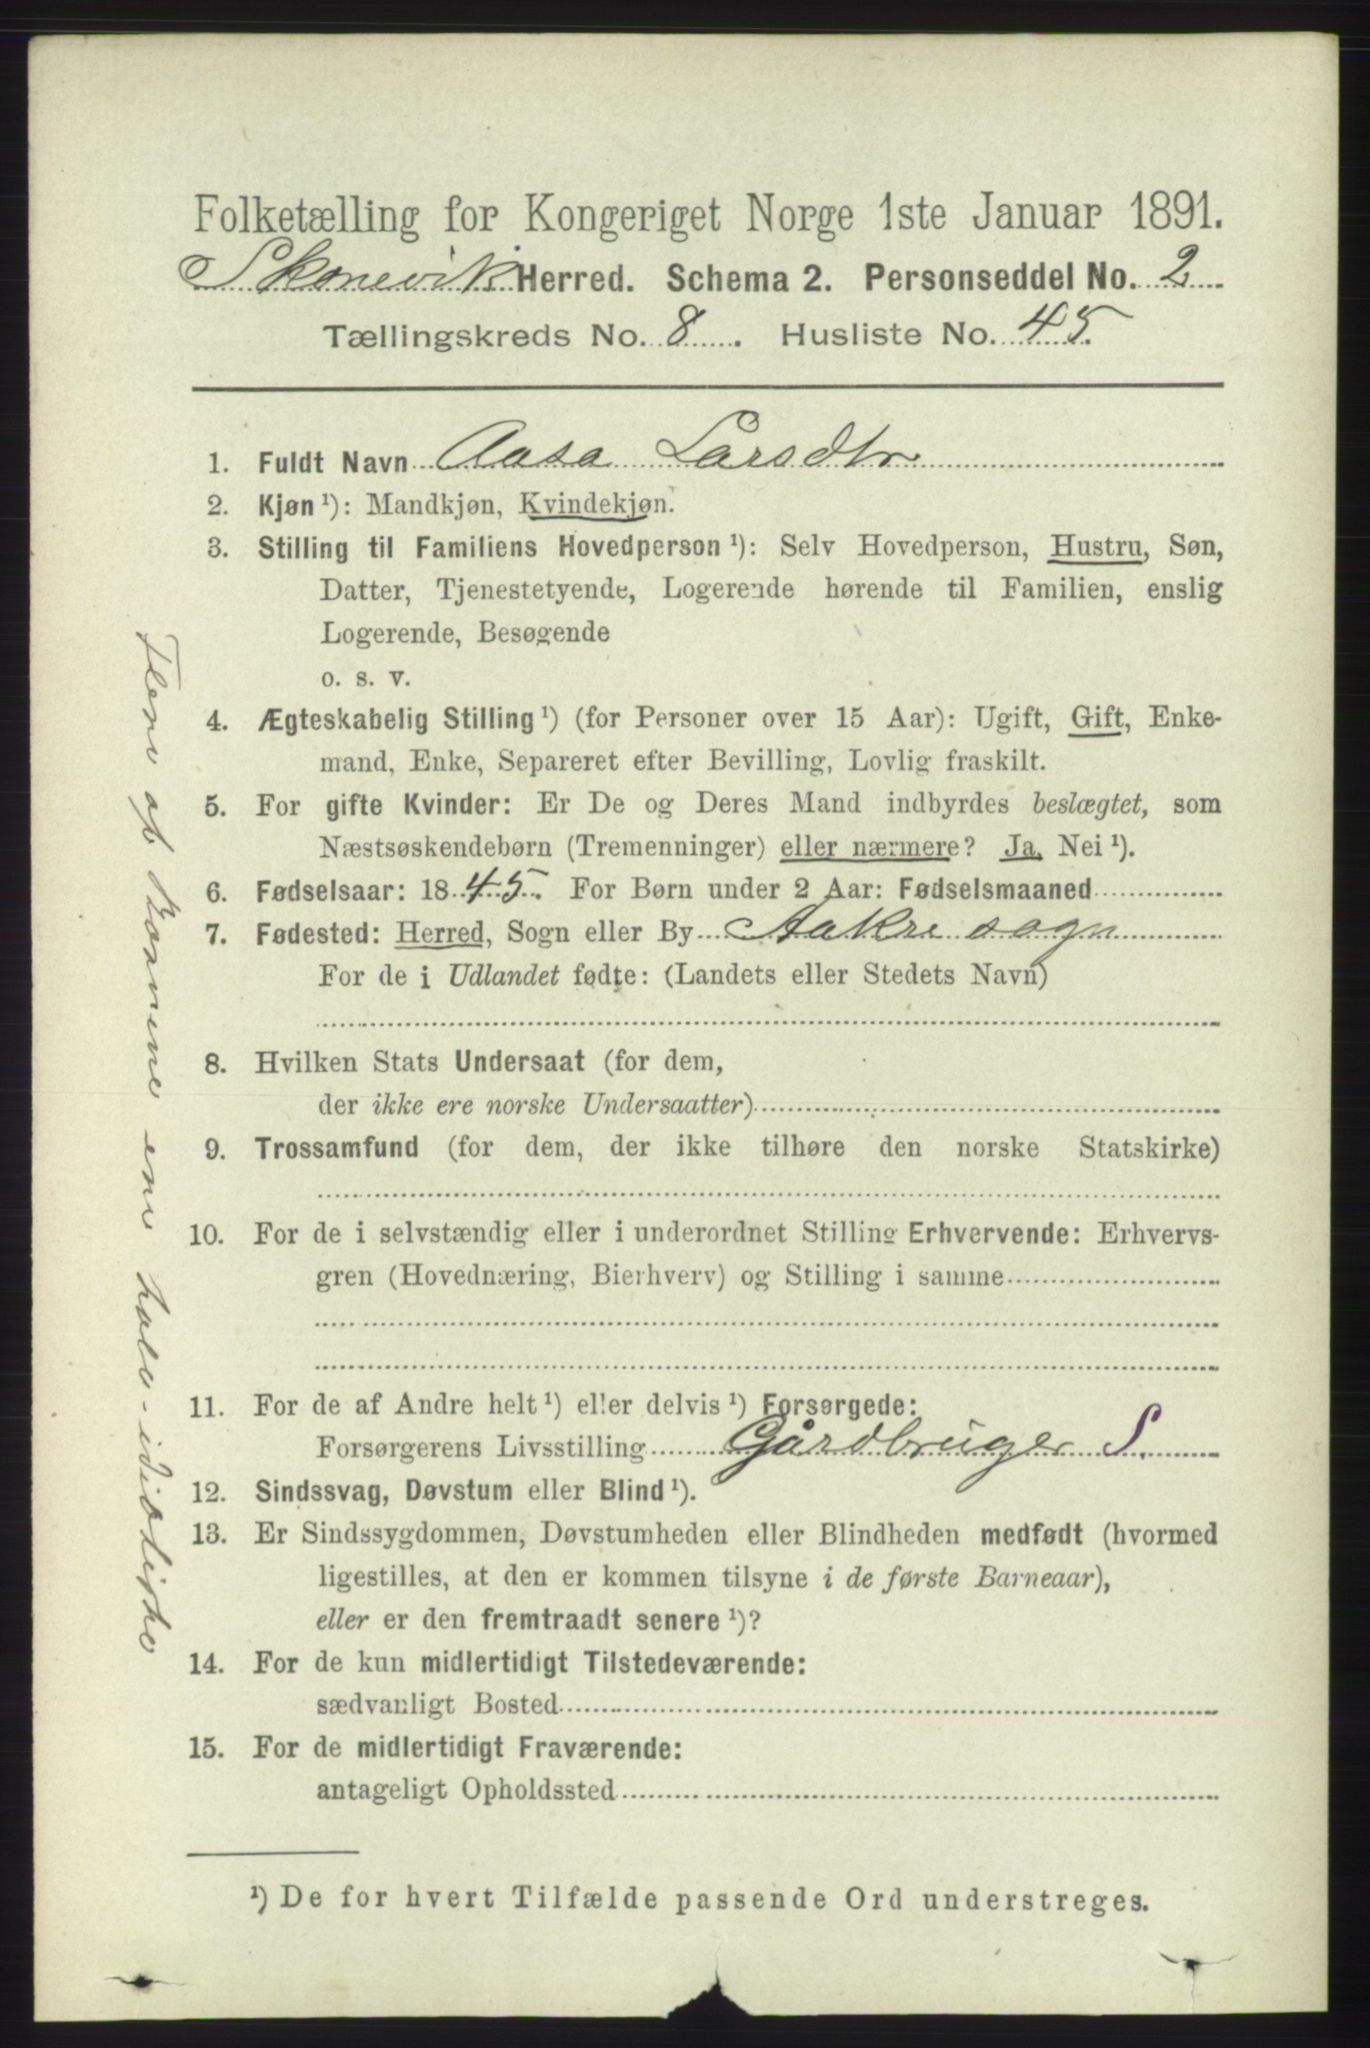 Folketælling for Kongeriget Norge 1ste Januar 1891.
Skonevik Herred. Schema 2. Personseddel No. 2
Tællingskreds No. 8. Husliste No. 45.
1. Fuldt Navn Aasa Larsdtr
2. Kjøn ¹): Mandkjøn, Kvindekjøn.
3. Stilling til Familiens Hovedperson ¹): Selv Hovedperson, Hustru, Søn,
Datter, Tjenestetyende, Logerende hørende til Familien, enslig
Logerende, Besøgende
o. s. v.
4. Ægteskabelig Stilling ¹) (for Personer over 15 Aar): Ugift, Gift, Enke-
mand, Enke, Separeret efter Bevilling, Lovlig fraskilt.
5. For gifte Kvinder: Er De og Deres Mand indbyrdes beslægtet, som
Næstsøskendebørn (Tremenninger) eller nærmere? Ja, Nei ¹).
6. Fødselsaar: 1845. For Børn under 2 Aar: Fødselsmaaned
7. Fødested: Herred, Sogn eller By Aakre sogn
For de i Udlandet fødte: (Landets eller Stedets Navn)
8. Hvilken Stats Undersaat (for dem,
der ikke ere norske Undersaatter)
9. Trossamfund (for dem, der ikke tilhøre den norske Statskirke)
10. For de i selvstændig eller i underordnet Stilling Erhvervende: Erhvervs-
gren (Hovednæring, Bierhverv) og Stilling i samme
11. For de af Andre helt ¹) eller delvis ¹) Forsørgede:
Forsørgerens Livsstilling Gårdbruger S.
12. Sindssvag, Døvstum eller Blind ¹).
13. Er Sindssygdommen, Døvstumheden eller Blindheden medfødt (hvormed
ligestilles, at den er kommen tilsyne i de første Barneaar),
eller er den fremtraadt senere ¹)?
14. For de kun midlertidigt Tilstedeværende:
sædvanligt Bosted
15. For de midlertidigt Fraværende:
antageligt Opholdssted
¹) De for hvert Tilfælde passende Ord understreges.
Flere af Børnene ere halv-idiotiske